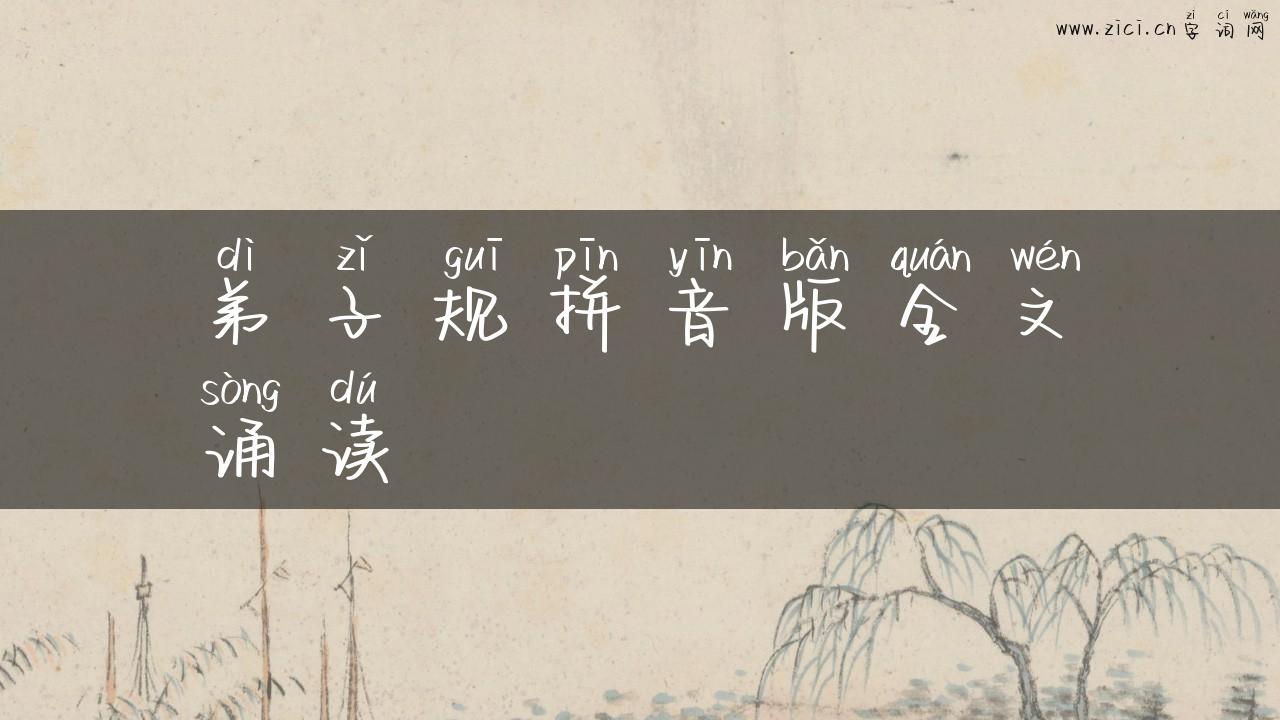 zì cí wǎng
www.zici.cn 字词网
dì zǐ guī pīn yīn bǎn quán wén
弟子规拼音版全文
sòng dú
诵读